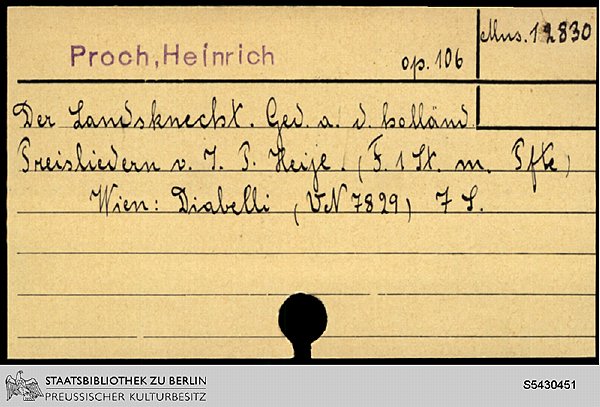 Mus. 12830
Proch, Heinrich op. 106
Der Landsknecht. Ged. a. d. holländ.
Preisliedern v. J. P. Heije. (F. 1 St. m. Pfte)
Wien: Diabelli (VN 7829) 7 S.
STAATSBIBLIOTHEK ZU BERLIN
PREUSSISCHER KULTURBESITZ
S5430451